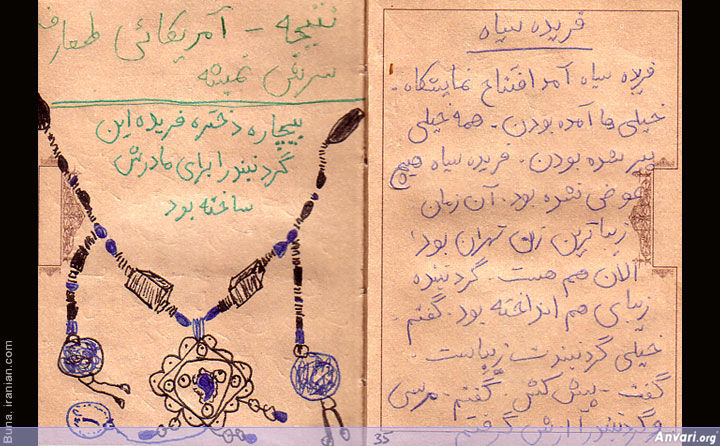 فریده سیاه
فریده سیاه آمد افتتاح نمایشگاه.
خیلی ها آمده بودن. همه خیلی
پیر شده بودن. فریده سیاه هیچ
عوض نشده بود. آن زمان
زیباترین زن تهران بود،
الان هم هست. گردنبند
زیبای هم انداخته بود. گفتم.
خیلی گردنبندت زیباست.
گفت - پیش کش. گفتم. مرسی
و گردنبند را ازش گرفتم.
35
نتیجه - آمریکائی طعارف
سرش نمیشه
بیچاره دختره فریده این
گردنبند را برای مادرش
ساخته بود
Buna. iranian.com
Anvari.org